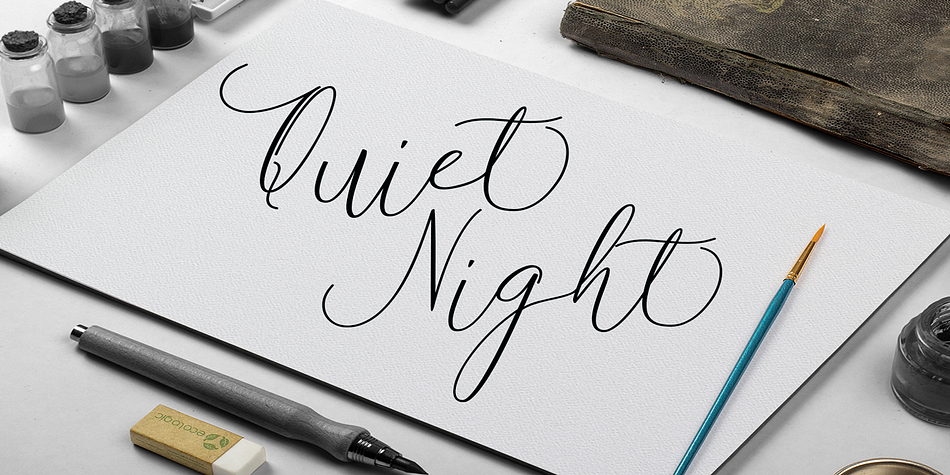 Quiet
Night
ecologic